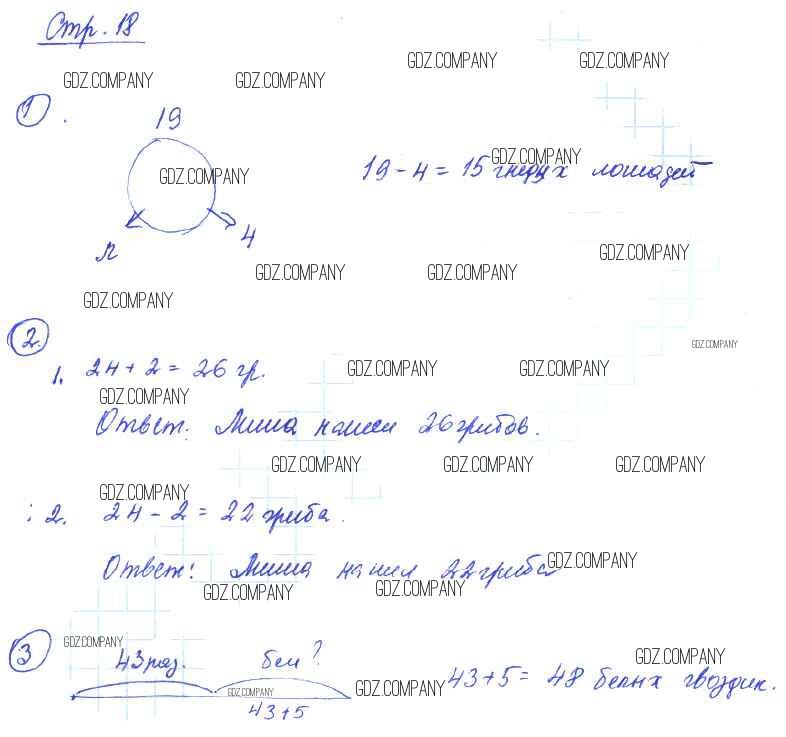 Стр. 18
GDZ.COMPANY GDZ.COMPANY
GDZ.COMPANY GDZ.COMPANY
1.
19
GDZ.COMPANY
GDZ.COMPANY
19 - 4 = 15 гнедых лошадей
4
GDZ.COMPANY
GDZ.COMPANY GDZ.COMPANY
GDZ.COMPANY
2.
GDZ.COMPANY
1. 24 + 2 = 26 гр.
GDZ.COMPANY GDZ.COMPANY
GDZ.COMPANY
Ответ: Миша нашел 26 грибов.
GDZ.COMPANY GDZ.COMPANY GDZ.COMPANY
GDZ.COMPANY
2. 24 - 2 = 22 гриба.
Ответ: Миша нашел 22 гриба
GDZ.COMPANY
GDZ.COMPANY GDZ.COMPANY
3
GDZ.COMPANY
43 роз. бел ?
GDZ.COMPANY
GDZ.COMPANY
GDZ.COMPANY
43+5
43+5 = 48 белых гвоздик.